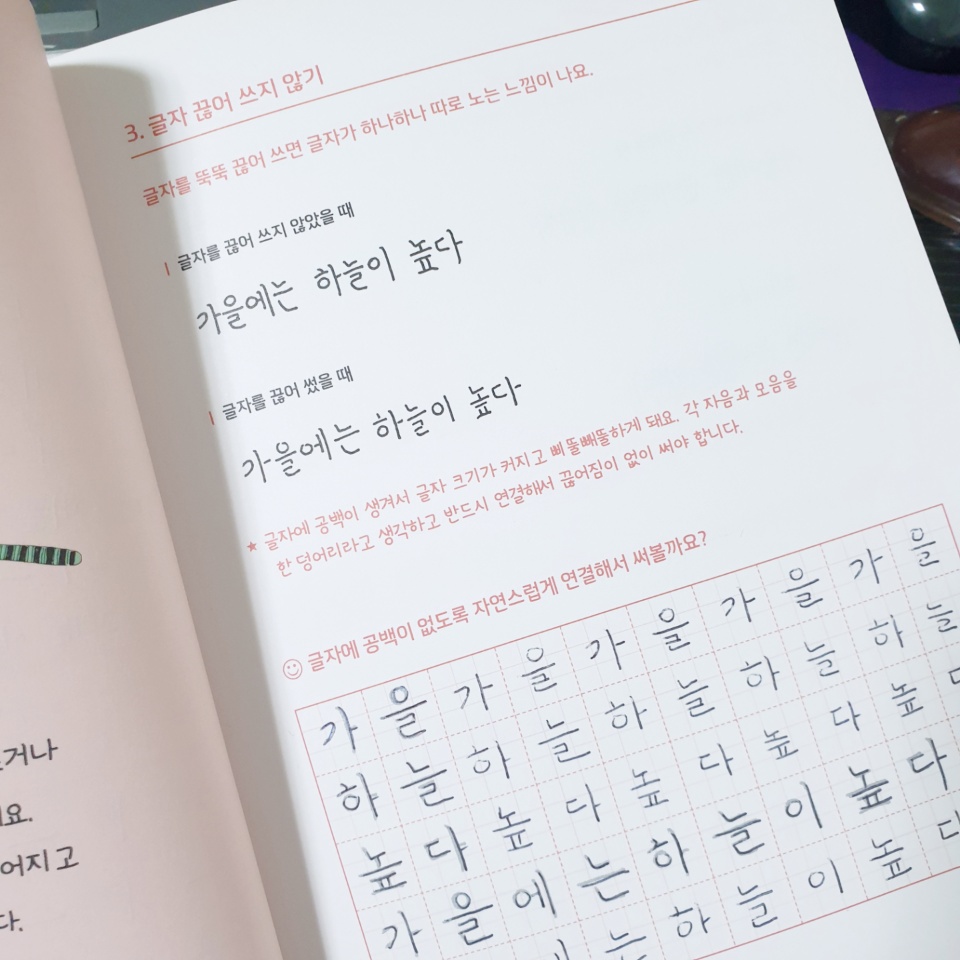 3. 글자 끊어 쓰지 않기
글자를 뚝뚝 끊어 쓰면 글자가 하나하나 따로 노는 느낌이 나요.
글자를 끊어 쓰지 않았을 때
가을에는 하늘이 높다
글자를 끊어 썼을 때
가을에는 하늘이 높다
★ 글자에 공백이 생겨서 글자 크기가 커지고 삐뚤빼뚤하게 돼요. 각 자음과 모음을
한 덩어리라고 생각하고 반드시 연결해서 끊어짐이 없이 써야 합니다.
글자에 공백이 없도록 자연스럽게 연결해서 써볼까요?
가 을 가 을 가 을 가 을 가 을
하 늘 하 늘 하 늘 하 늘 하 늘
높 다 높 다 높 다 높 다 높
가 을 에 는 하 늘 이 높 다
는 하 늘 이 높 다
거나
요.
어지고
다.